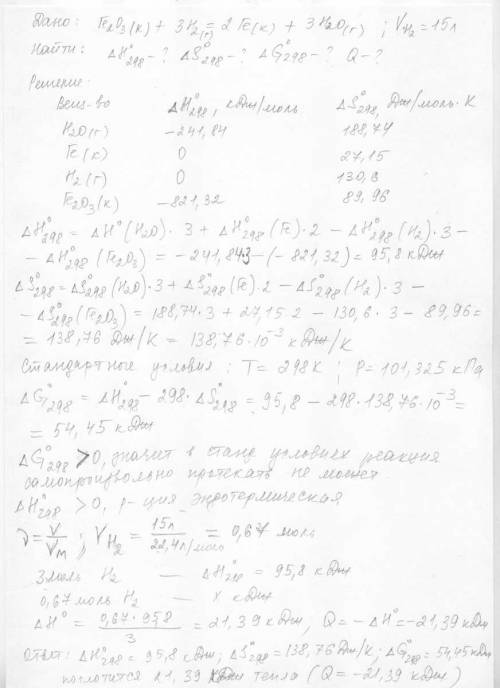 Дано: Fe₂O₃(к) + 3H₂(г) = 2Fe(к) + 3H₂O(г) ; V H₂ = 15л
Найти: ΔH°298 -? ΔS°298 -? ΔG°298 -? Q -?
Решение.
Вещ-во ΔH°298, кДж/моль ΔS°298, Дж/моль·K
H₂O(г) -241,84 188,74
Fe(к) 0 27,15
H₂(г) 0 130,6
Fe₂O₃(к) -821,32 89,96
ΔH°298 = ΔH°(H₂O)·3 + ΔH°298(Fe)·2 - ΔH°298(H₂)·3 -
- ΔH°298(Fe₂O₃) = -241,84·3 - (-821,32) = 95,8 кДж
ΔS°298 = ΔS°298(H₂O)·3 + ΔS°298(Fe)·2 - ΔS°298(H₂)·3 -
- ΔS°298(Fe₂O₃) = 188,74·3 + 27,15·2 - 130,6·3 - 89,96 =
= 138,76 Дж/K = 138,76·10⁻³ кДж/K
Стандартные условия: T = 298К ; P = 101,325 кПа
ΔG°298 = ΔH°298 - 298·ΔS°298 = 95,8 - 298·138,76·10⁻³ =
= 54,45 кДж
ΔG°298 > 0, значит в станд условиях реакция
самопроизвольно протекать не может
ΔH°298 > 0, р-ция эндотермическая
ν = V/Vm ; νH₂ = 15л / 22,4л/моль = 0,67 моль
3 моль H₂ — ΔH°298 = 95,8 кДж
0,67 моль H₂ — x кДж
ΔH° = 0,67·95,8 / 3 = 21,39 кДж, Q = -ΔH° = -21,39 кДж
Ответ: ΔH°298 = 95,8 кДж; ΔS°298 = 138,76 Дж/K; ΔG°298 = 54,45 кДж
поглотится 21,39 кДж тепла (Q = -21,39 кДж)